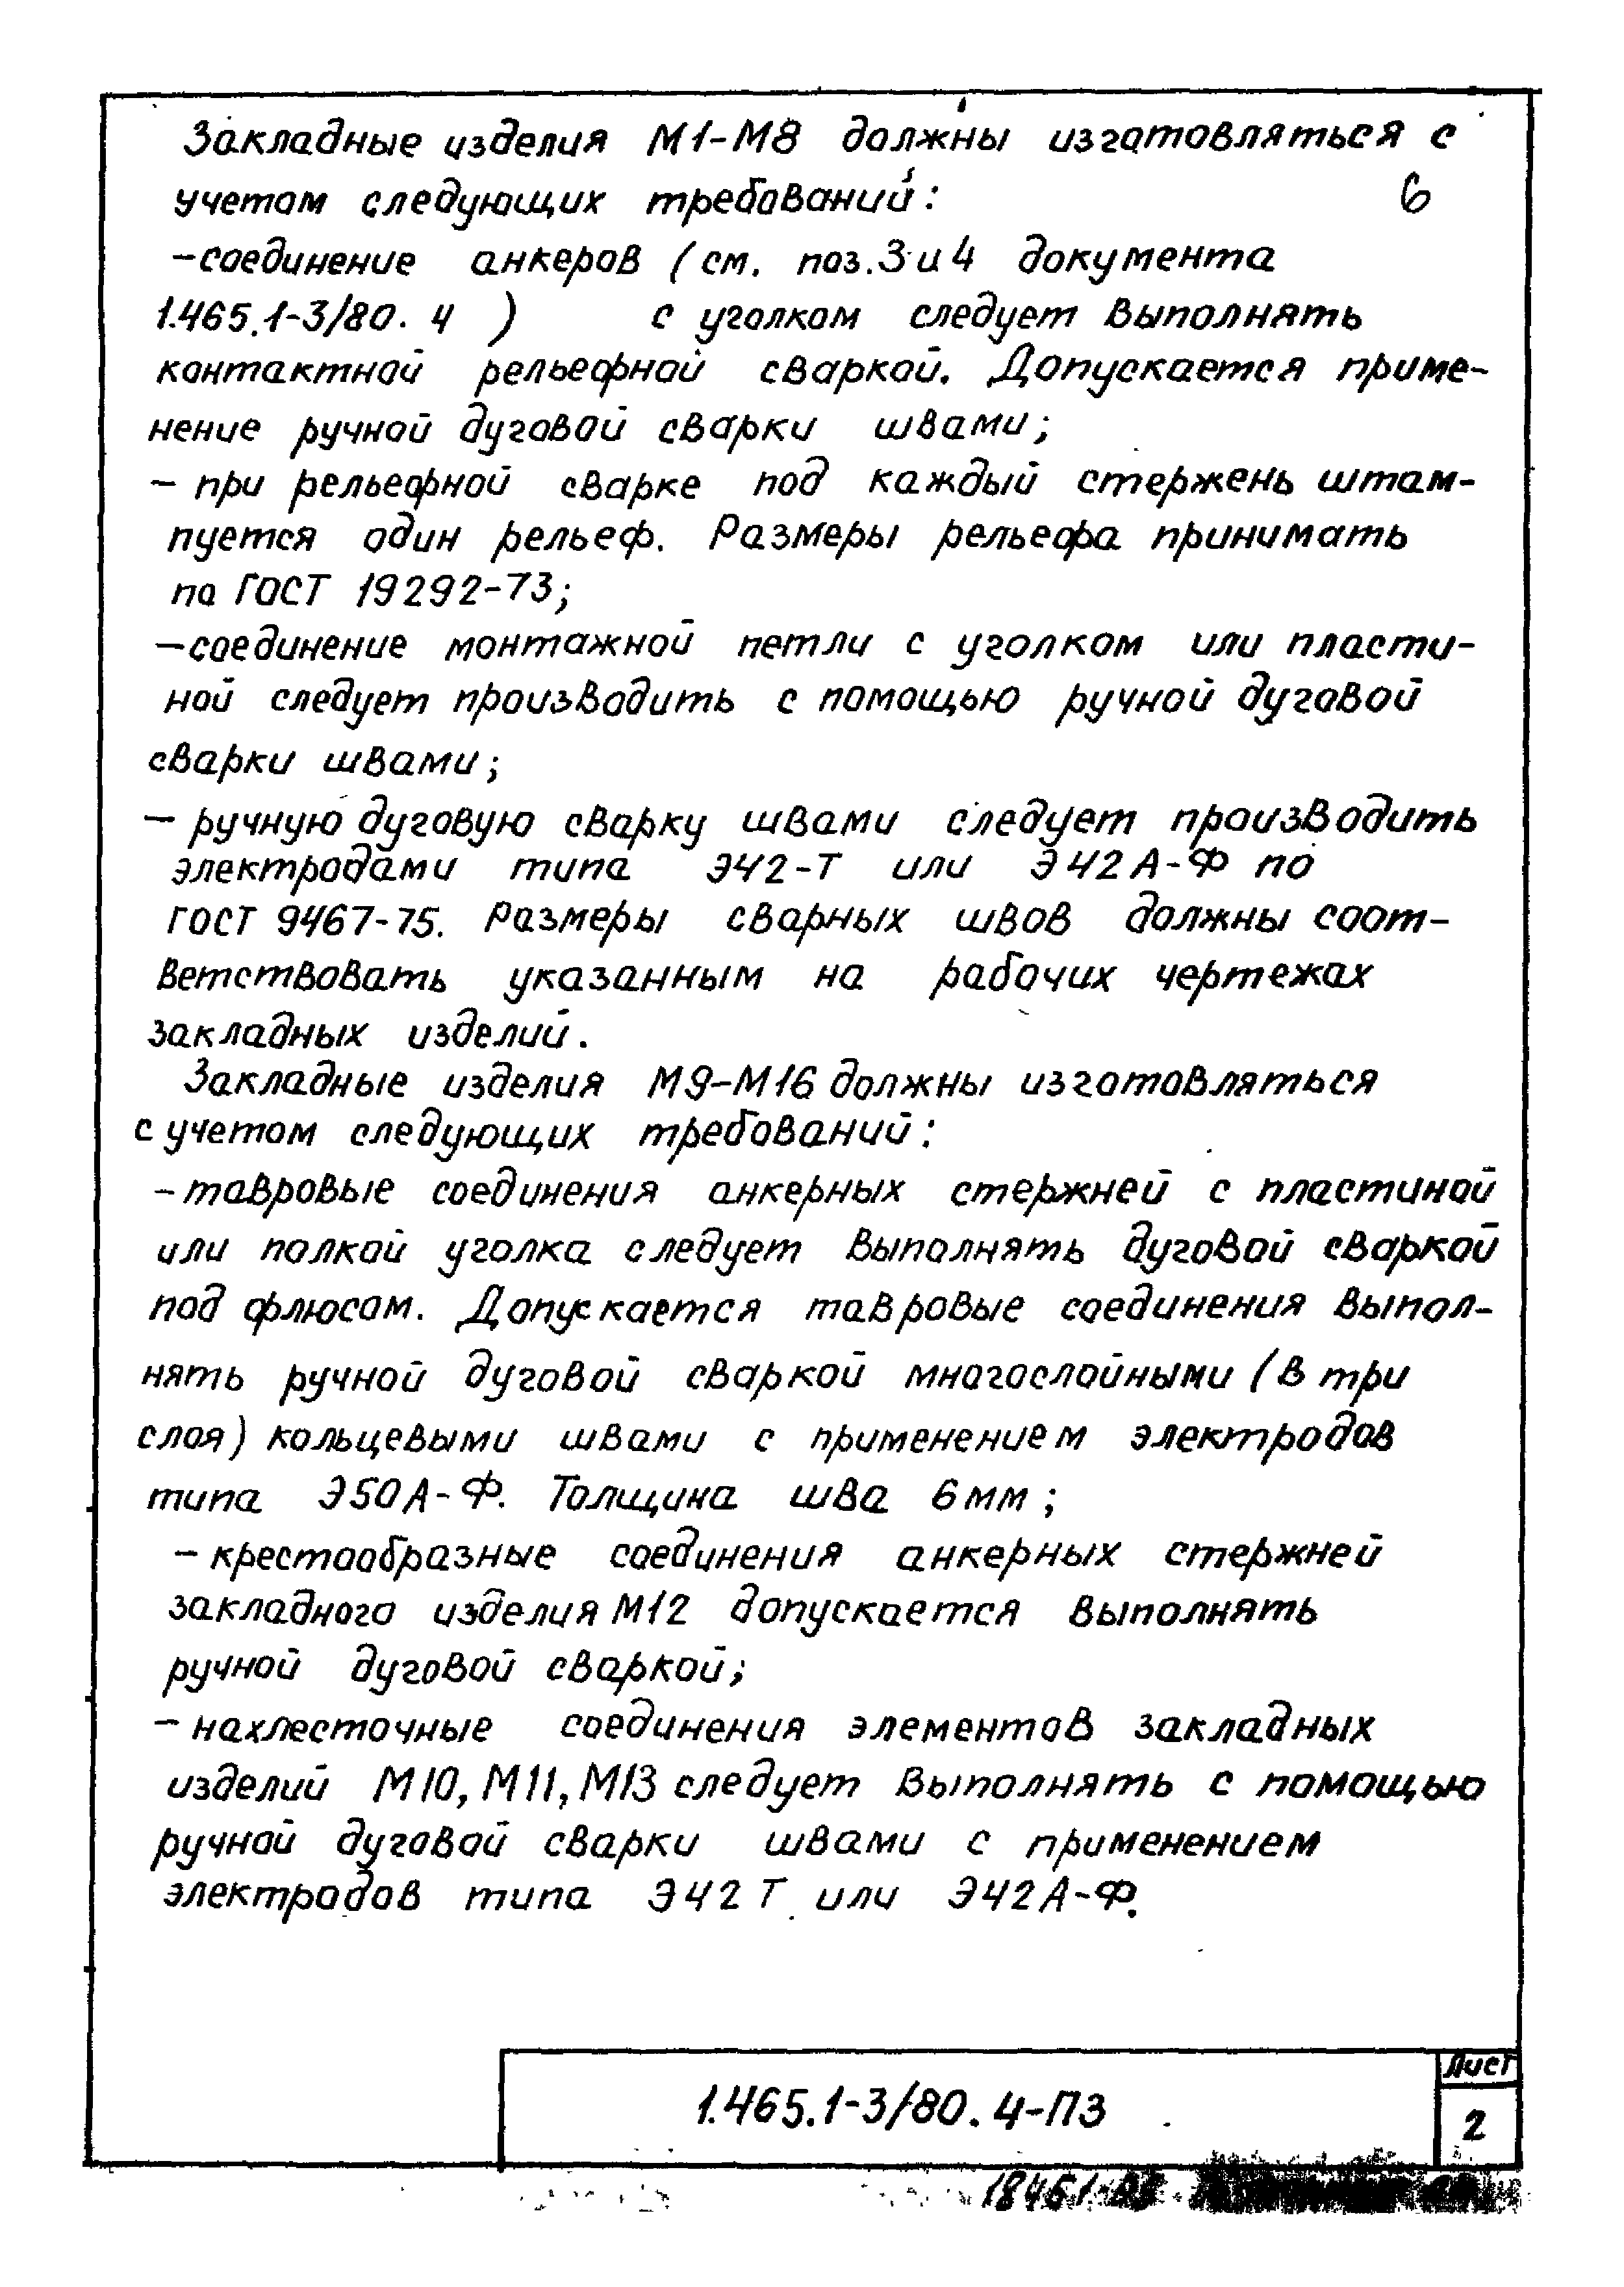 Закладные изделия М1-М8 должны изготовляться с
учетом следующих требований:
6
-соединение анкеров (см. поз.3 и 4 документа
1.465.1-3/80. 4 ) с уголком следует выполнять
контактной рельефной сваркой. Допускается приме-
нение ручной дуговой сварки швами;
- при рельефной сварке под каждый стержень штам-
пуется один рельеф. Размеры рельефа принимать
по ГОСТ 19292-73;
-соединение монтажной петли с уголком или пласти-
ной следует производить с помощью ручной дуговой
сварки швами;
- ручную дуговую сварку швами следует производить
электродами типа Э42-Т или Э42А-Ф по
ГОСТ 9467-75. Размеры сварных швов должны соот-
ветствовать указанным на рабочих чертежах
закладных изделий.
Закладные изделия М9-М16 должны изготовляться
с учетом следующих требований:
-тавровые соединения анкерных стержней с пластиной
или полкой уголка следует выполнять дуговой сваркой
под флюсом. Допускается тавровые соединения выпол-
нять ручной дуговой сваркой многослойными (в три
слоя) кольцевыми швами с применением электродов
типа Э50А-Ф. Толщина шва 6мм;
- крестообразные соединения анкерных стержней
закладного изделия М12 допускается выполнять
ручной дуговой сваркой;
- нахлесточные соединения элементов закладных
изделий М10, М11, М13 следует выполнять с помощью
ручной дуговой сварки швами с применением
электродов типа Э42Т или Э42А-Ф.
1.465.1-3/80. 4-ПЗ
Лист
2